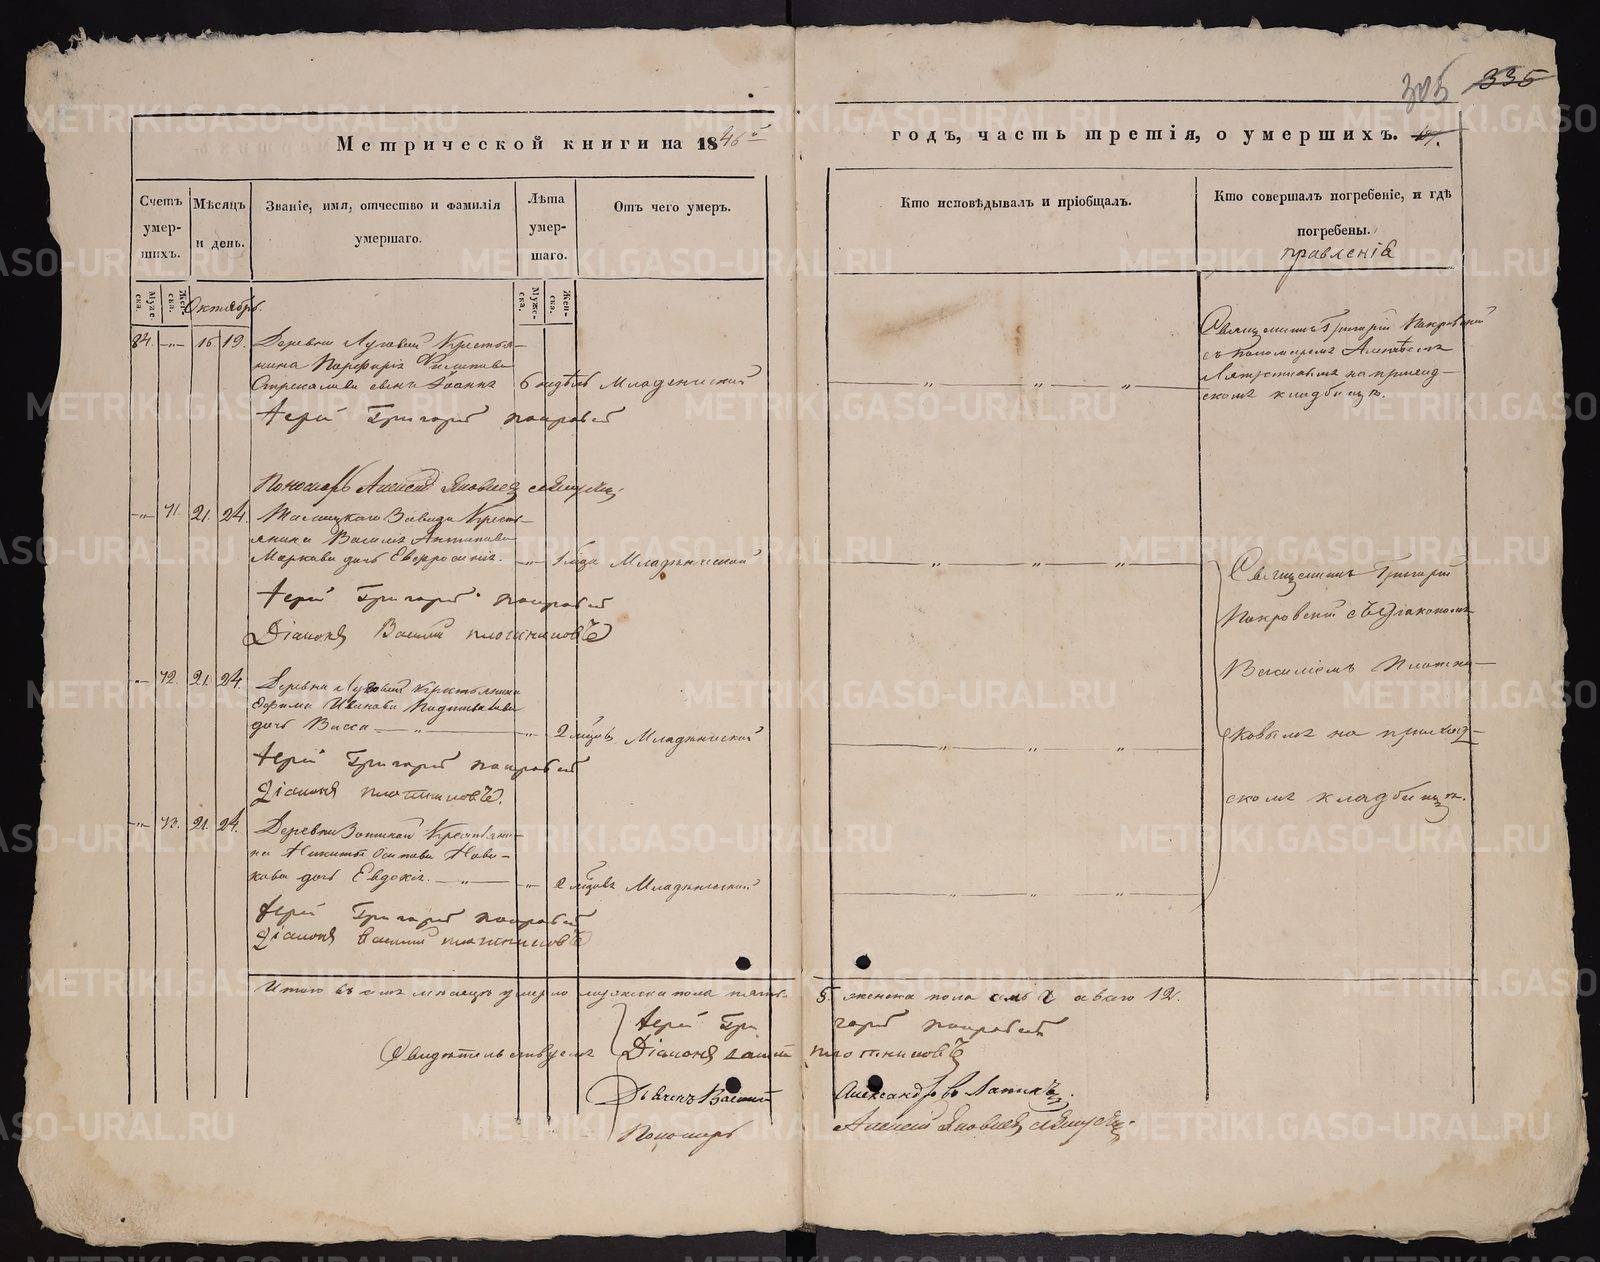 305 335
Метрической книги на 1846
годъ, часть третія, о умершихъ.
Счетъ умер-шихъ.
Мѣсяцъ и день.
Званіе, имя, отчество и фамилія умершаго.
Лѣта умер-шаго.
Отъ чего умеръ.
Кто исповѣдывалъ и пріобщалъ.
Кто совершалъ погребеніе, и гдѣ погребены.
правленія
Муже-ска.
Жен-ска.
Октябрь.
Муже-ска.
Жен-ска.
84. 16 19. Деревни Луговой Крестья-
нина Порфирія Филипова
Стрекалова сынъ Іоаннъ 6 недѣль Младенческой
Священникъ Григорій Покровскій
съ пономаремъ Алексѣемъ
на приход-
скомъ кладбищѣ.
Іерей Григорій Покровскій
Пономарь Алексій Яковлев
71. 21. 24. Завода Кресть-
янина Василья Антипова
Маркова дочь Евфросинія. 1 года Младенческой
Іерей Григорій Покровскій
Діаконъ Василій Плотниковъ
Священникъ Григорій
Покровскій съ Діакономъ
Василіемъ Плотни-
ковымъ на приход-
скомъ кладбищѣ.
72. 21. 24. Деревни Луговой Крестьянина
Ефима Иванова
дочь Васса 2 мѣсяцовъ Младенческой
Іерей Григорій Покровскій
Діаконъ Плотниковъ.
73. 21. 24. Деревни Крестьяни-
на Никиты Осипова Нови-
кова дочь Евдокія. 2 мѣсяцовъ Младенческой
Іерей Григорій Покровскій
Діаконъ Василій Плотниковъ
Итого въ семъ мѣсяцѣ умерло мужеска пола пять 5. женска пола семь 7 а всего 12.
Іерей Григорій Покровскій
Свидѣтельствуемъ Діаконъ Василій Плотниковъ
Дьячекъ Василій Александровъ Лапинъ.
Пономарь Алексій Яковлев
METRIKI.GASO-URAL.RU